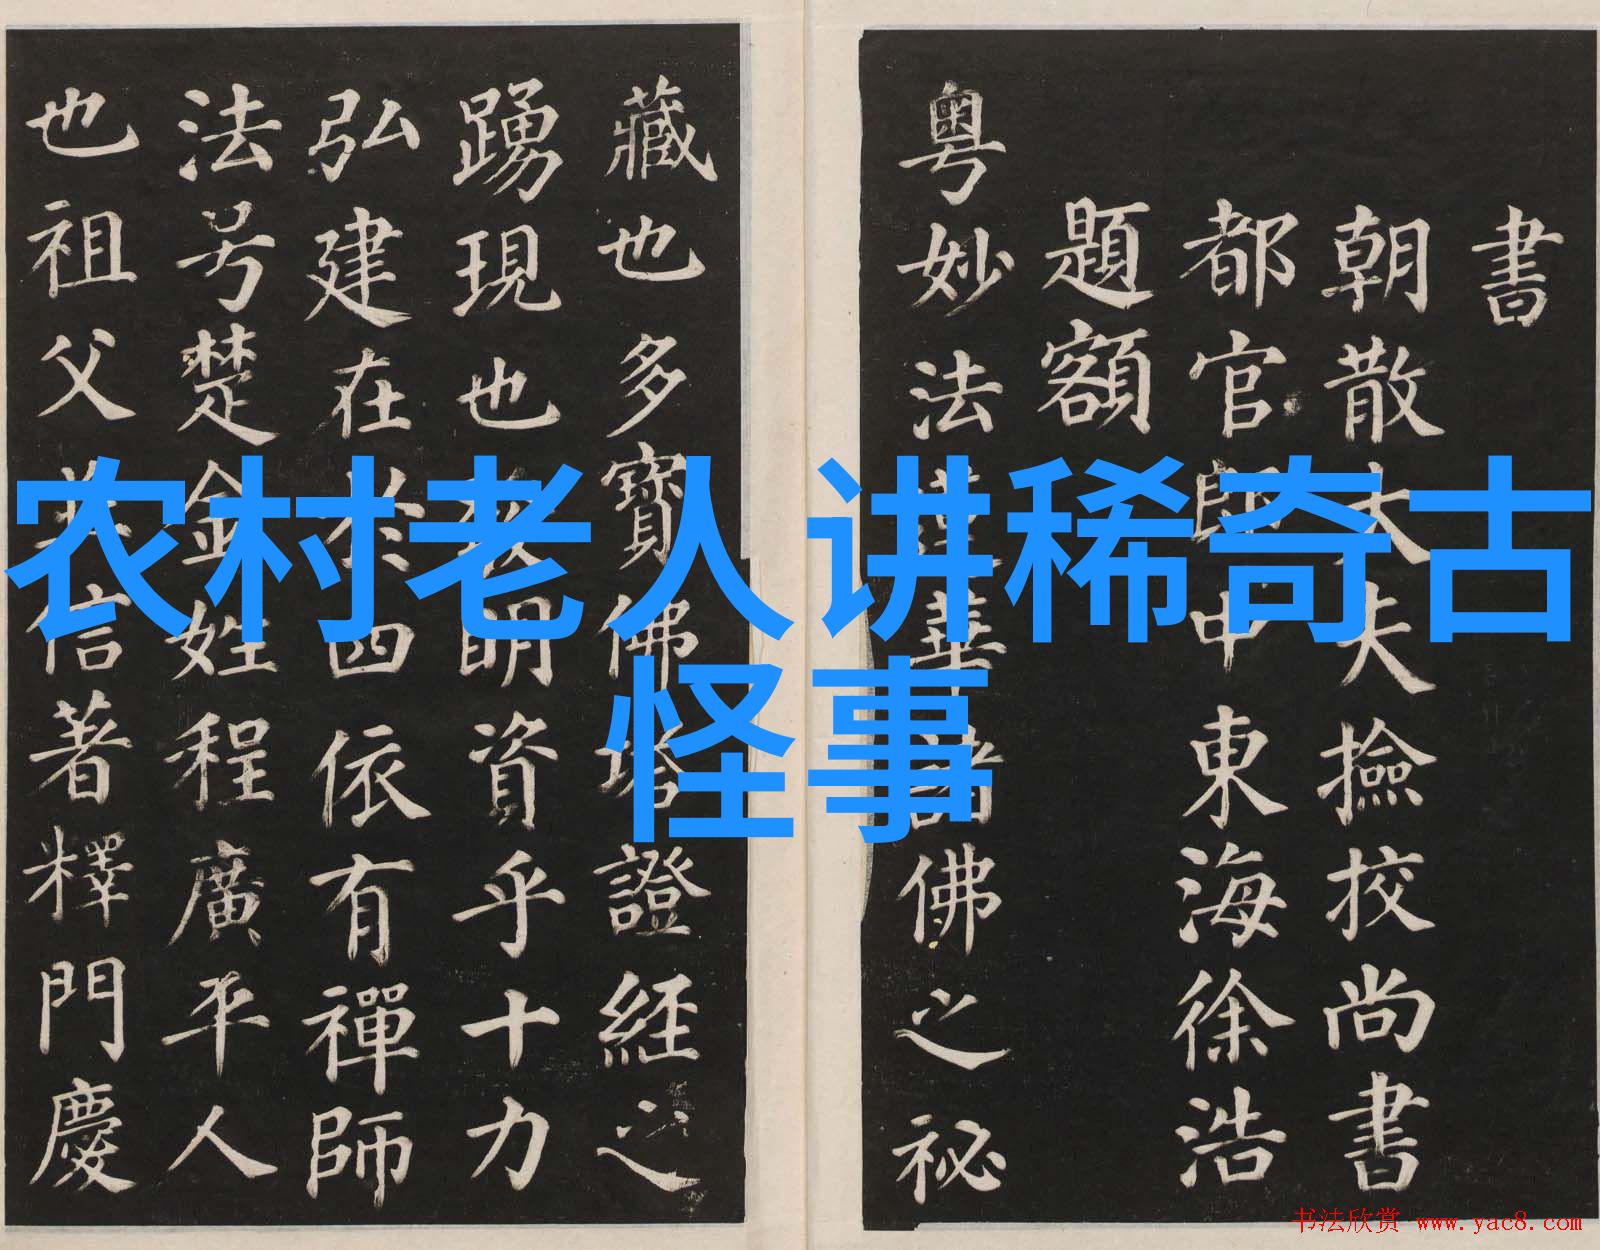 农村老人讲稀奇古
怪事
書
朝散大夫撿挍尚書
都官郎中東海徐浩
題額
粵妙法蓮華諸佛之秘
藏也多寶佛塔證經之
踴現也發明資乎十力
弘建在於四依有禪師
法号楚金姓程廣平人
也祖父並信著釋門慶
书法欣赏 www.yac8.com